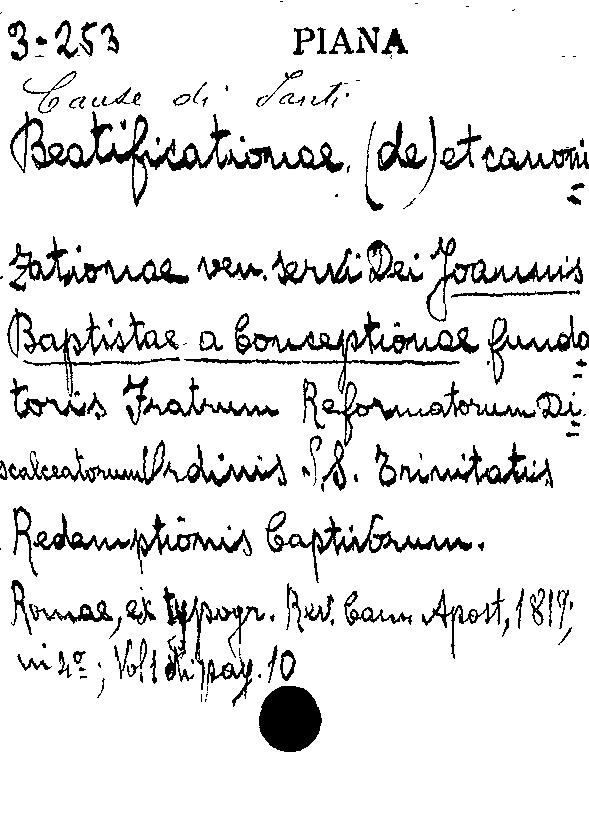 3-253 PIANA
Cause di Santi
Beatificationae (de) et canoni=
zationae ven. servi Dei Joannis
Baptistae a Conceptionae funda=
toris Fratrum Reformatorum Di=
scalceatorum Ordinis S.S. Trinitatis
Redemptionis Captivorum.
Romae, ex typogr. Rev. Cam. Apost, 1819;
in 4º; Vol 1 di pag. 10